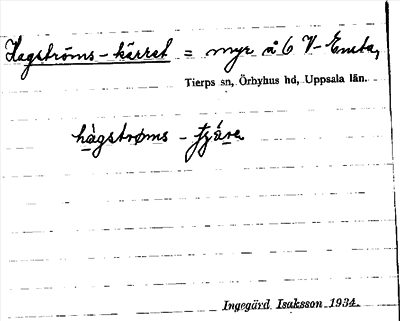 Hagströms-kärret = myr å 6 V-Ensta,
Tierps sn, Örbyhus hd, Uppsala län.
hàgstrøms-
Ingegärd Isaksson 1934.